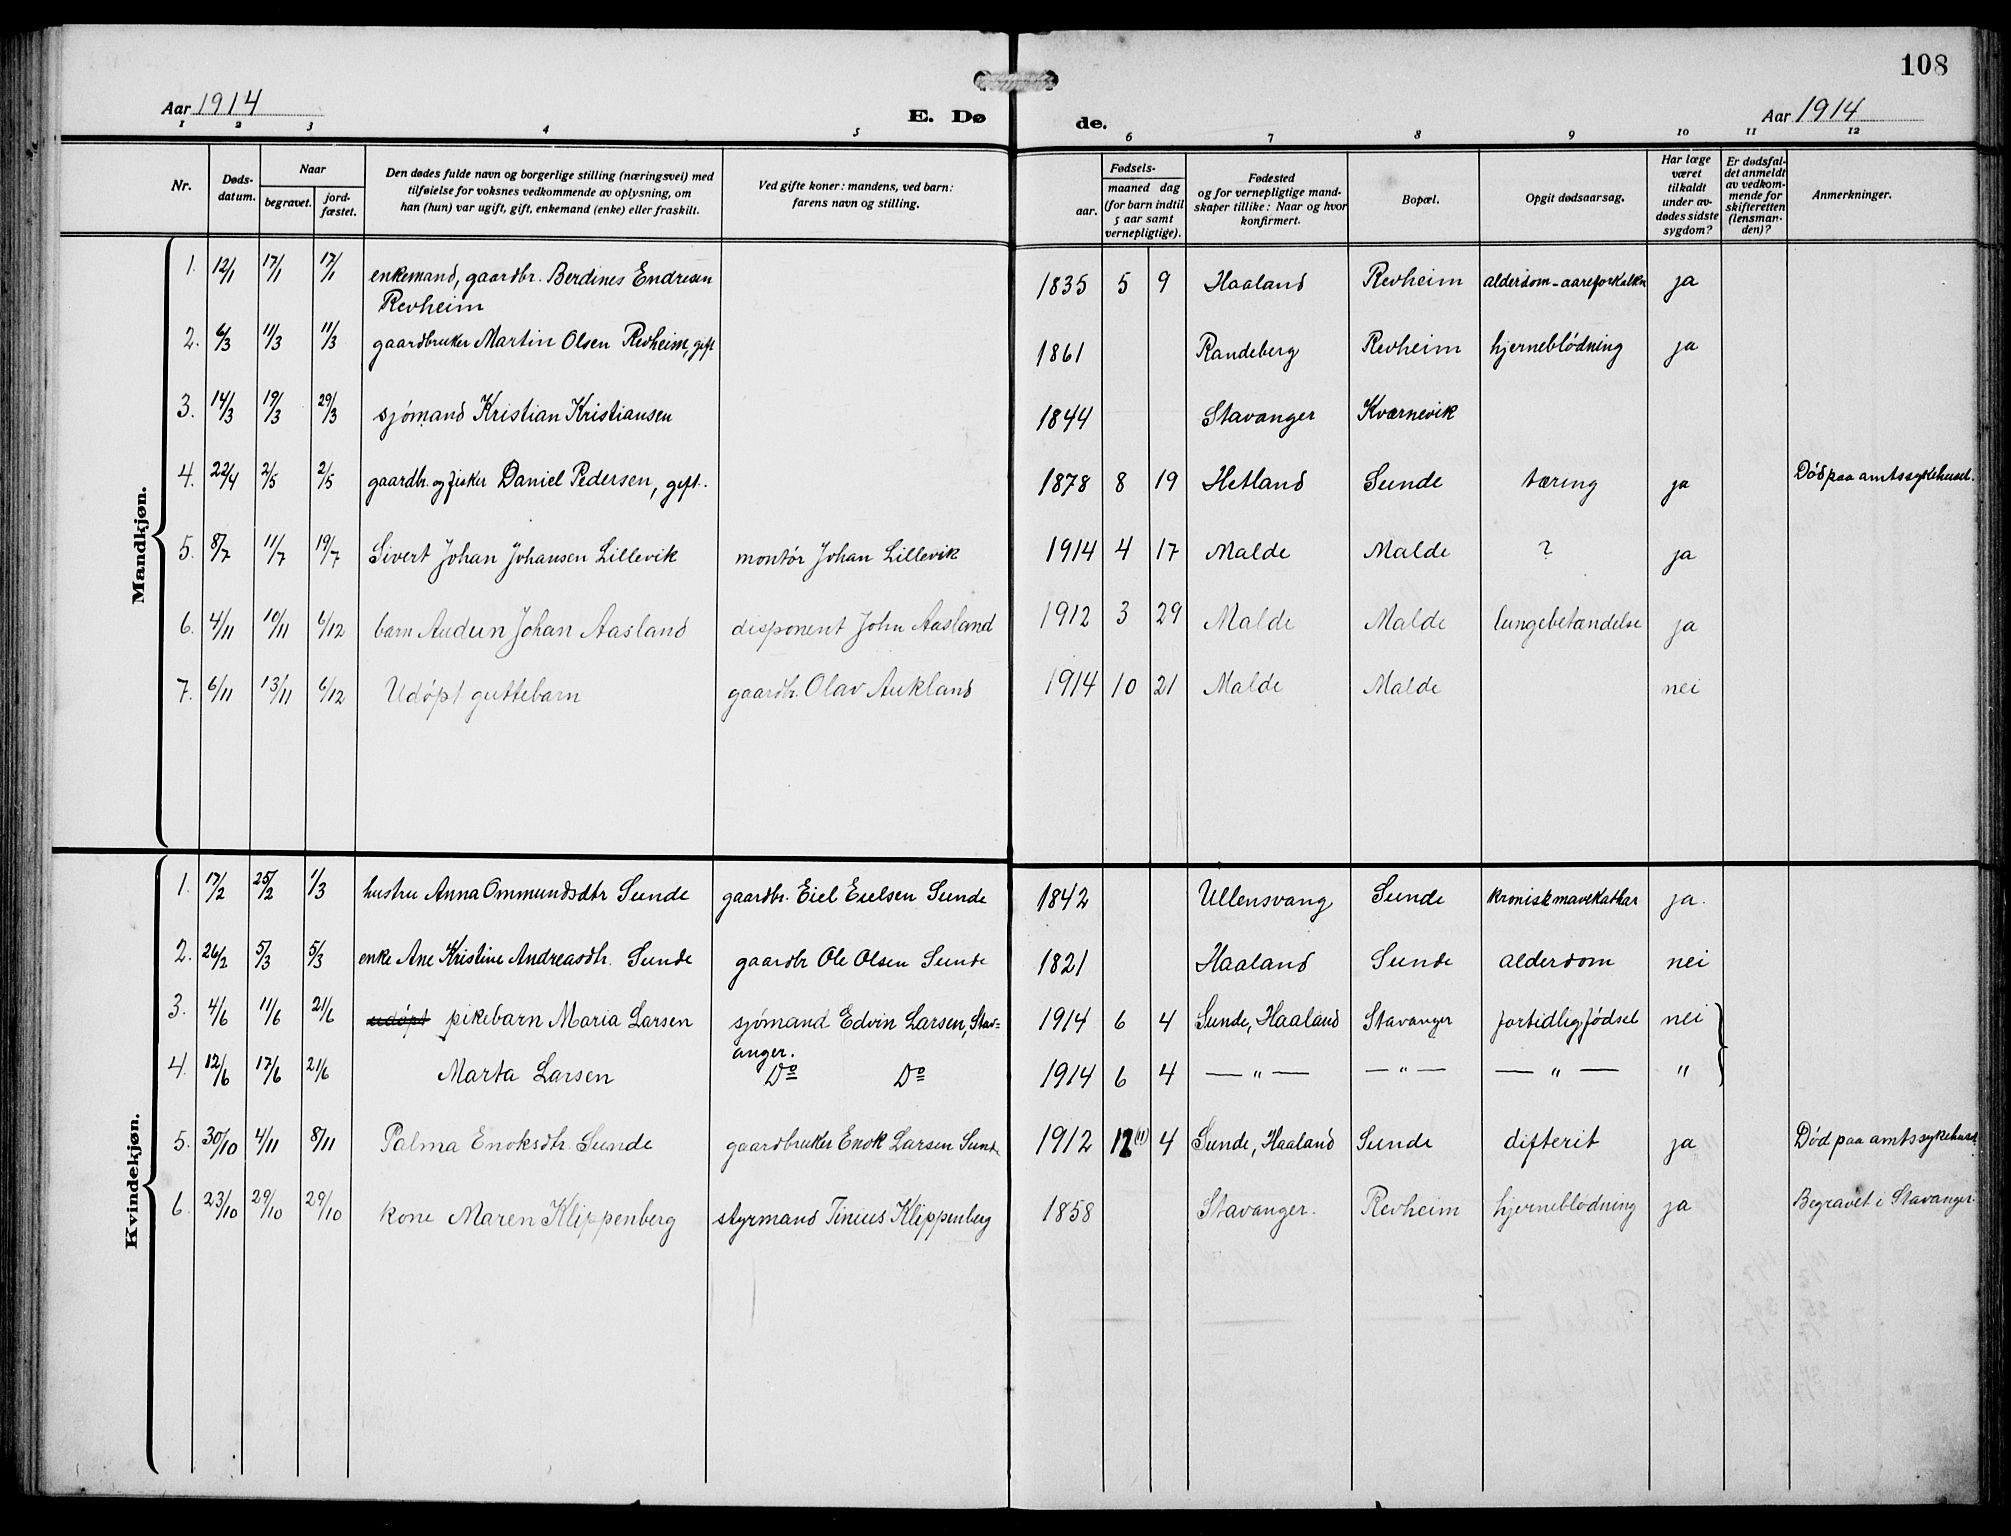 108
Aar 1914 E. Dø de. Aar 1914
1 2 3 4 5 6 7 8 9 10 11 12
Nr. Døds-datum. Naar begravet. jord-fæstet. Den dødes fulde navn og borgerlige stilling (næringsvei) med tilføielse for voksnes vedkommende av oplysning, om han (hun) var ugift, gift, enkemand (enke) eller fraskilt. Ved gifte koner: mandens, ved barn: farens navn og stilling. Fødsels- aar. maaned dag (for barn indtil 5 aar samt vernepligtige). Fødested og for vernepligtige mand-skaper tillike: Naar og hvor konfirmert. Bopæl. Opgit dødsaarsag. Har læge været tilkaldt under av-dødes sidste sygdom? Er dødsfal-det anmeldt av vedkom-mende for skifteretten (lensman-den)? Anmerkninger.
Mandkjøn.
1. 12/1 17/1 17/1 enkemand, gaardbr. Berdines Endresen Revheim 1835 5 9 Haaland Revheim alderdom - aareforkalkn ja
2. 6/3 11/3 11/3 gaardbruker Martin Olsen Revheim, gift 1861 Randeberg Revheim hjerneblødning ja
3. 14/3 19/3 29/3 sjømand Kristian Kristiansen 1844 Stavanger Kværnevik
4. 22/4 2/5 2/5 gaardbr. og fisker Daniel Pedersen, gift. 1878 8 19 Hetland Sunde tæring ja Død paa amtssykehuset.
5. 8/7 11/7 19/7 Sivert Johan Johansen Lillevik montør Johan Lillevik 1914 4 17 Malde Malde ? ja
6. 4/11 10/11 6/12 barn Audun Johan Aasland disponent John Aasland 1912 3 29 Malde Malde lungebetændelse ja
7. 6/11 13/11 6/12 Udøpt guttebarn gaardbr. Olav Aukland 1914 10 21 Malde Malde nei
Kvindekjøn.
1. 17/2 25/2 1/3 hustru Anna Ommundsdtr Sunde gaardbr. Eiel Eielsen Sunde 1842 Ullensvang Sunde kronisk mavekathar ja.
2. 26/2 5/3 5/3 enke Ane Kristine Andreasdtr. Sunde gaardbr Ole Olsen Sunde 1821 Haaland Sunde alderdom nei
3. 4/6 11/6 21/6 udøpt pikebarn Maria Larsen sjømand Edvin Larsen, Stav=anger. 1914 6 4 Sunde, Haaland Stavanger fortidlig fødsel nei
4. 12/6 17/6 21/6 Marta Larsen Do Do 1914 6 4 — " — — " — — " — "
5. 30/10 4/11 8/11 Palma Enoksdtr. Sunde gaardbruker Enok Larsen Sunde 1912 12 (11) 4 Sunde, Haaland Sunde difterit ja Død paa amtssykehuset
6. 23/10 29/10 29/10 kone Maren Klippenberg styrmand Tinius Klippenberg 1858 Stavanger. Revheim hjerneblødning ja Begravet i Stavanger.